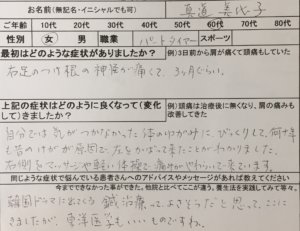 お名前(無記名・イニシャルでも可) 真道 美代子
ご年齢 10代 20代 30代 40代 50代 60代 70代 80代
性別 女 男 職業 パートドライバー スポーツ
最初はどのような症状がありましたか? 例)3日前から肩が痛くて頭痛もしていた
右足のつけ根の神経が痛くて、3ヶ月ぐらい。
上記の症状はどのように良くなって(変化して)きましたか? 例)頭痛は治療後に無くなり、肩の痛みも改善してきた
自分では気がつかなかった体のゆがみに、びっくりして、何十年
も昔のけがが原因で、左をかばって来たことがわかりました。
右側をマッサージや軽い体操で痛みがやわらいで来ています。
同じような症状で悩んでいる患者さんへのアドバイスやメッセージがあれば教えてください
今までできなかった事ができた。他院と比べてここが違う。養生法を実践してみて等々。
韓国ドラマに出てくる鍼治療って、よさそうだと思って、ここに
きましたが、東洋医学もいいものですね。